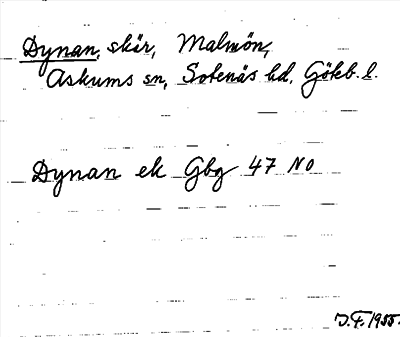 Dynan, skär, Malmön,
Askums sn, Sotenäs hd, Göteb. l.
Dynan ek Gbg 47 NO
J.F. 1955.